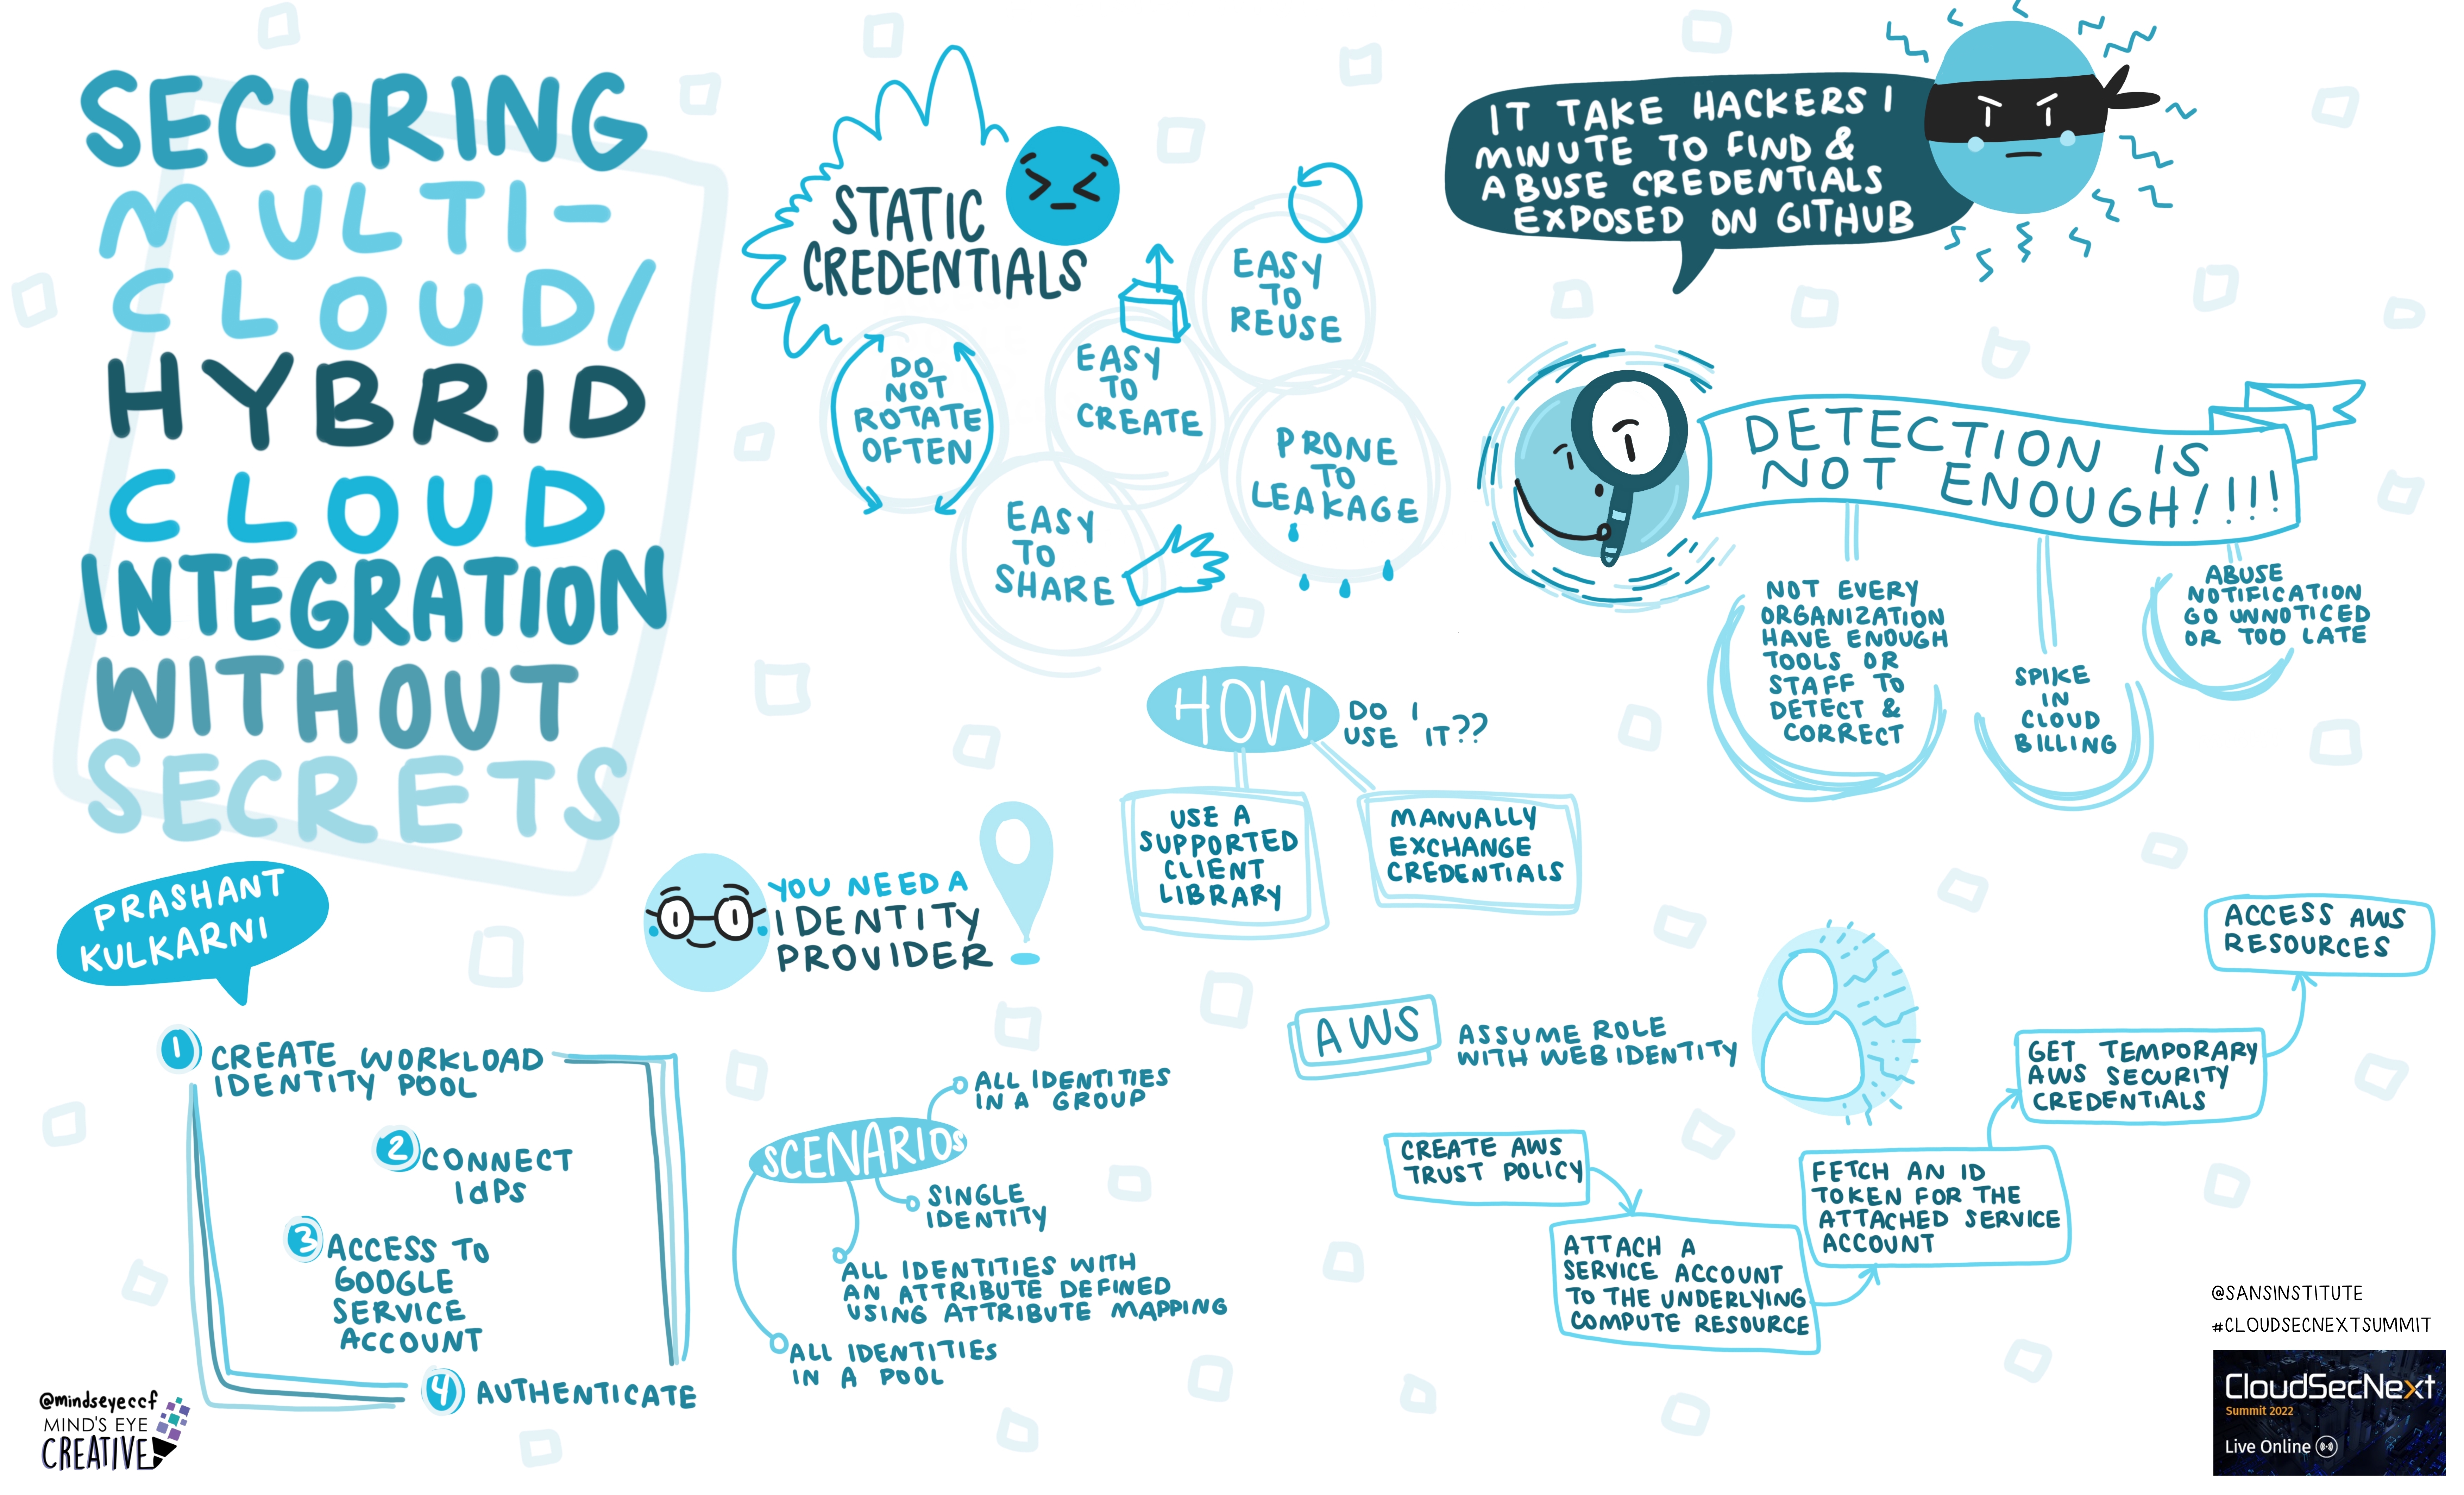 SECURING
MULTI-
CLOUD/
HYBRID
CLOUD
INTEGRATION
WITHOUT
SECRETS
PRASHANT
KULKARNI
STATIC
CREDENTIALS
DO
NOT
ROTATE
OFTEN
EASY
TO
CREATE
EASY
TO
REUSE
EASY
TO
SHARE
PRONE
TO
LEAKAGE
IT TAKE HACKERS 1
MINUTE TO FIND &
ABUSE CREDENTIALS
EXPOSED ON GITHUB
DETECTION IS
NOT ENOUGH!!!!
NOT EVERY
ORGANIZATION
HAVE ENOUGH
TOOLS OR
STAFF TO
DETECT &
CORRECT
SPIKE
IN
CLOUD
BILLING
ABUSE
NOTIFICATION
GO UNNOTICED
OR TOO LATE
HOW
DO I
USE IT??
USE A
SUPPORTED
CLIENT
LIBRARY
MANUALLY
EXCHANGE
CREDENTIALS
YOU NEED A
IDENTITY
PROVIDER
1
CREATE WORKLOAD
IDENTITY POOL
2
CONNECT
IdPS
3
ACCESS TO
GOOGLE
SERVICE
ACCOUNT
4
AUTHENTICATE
SCENARIOS
ALL IDENTITIES
IN A GROUP
SINGLE
IDENTITY
ALL IDENTITIES WITH
AN ATTRIBUTE DEFINED
USING ATTRIBUTE MAPPING
ALL IDENTITIES
IN A POOL
AWS
ASSUME ROLE
WITH WEB IDENTITY
CREATE AWS
TRUST POLICY
ATTACH A
SERVICE ACCOUNT
TO THE UNDERLYING
COMPUTE RESOURCE
FETCH AN ID
TOKEN FOR THE
ATTACHED SERVICE
ACCOUNT
GET TEMPORARY
AWS SECURITY
CREDENTIALS
ACCESS AWS
RESOURCES
@mindseyeccf
MIND'S EYE
CREATIVE
@SANSINSTITUTE
#CLOUDSECNEXTSUMMIT
CloudSecNext
Summit 2022
Live Online